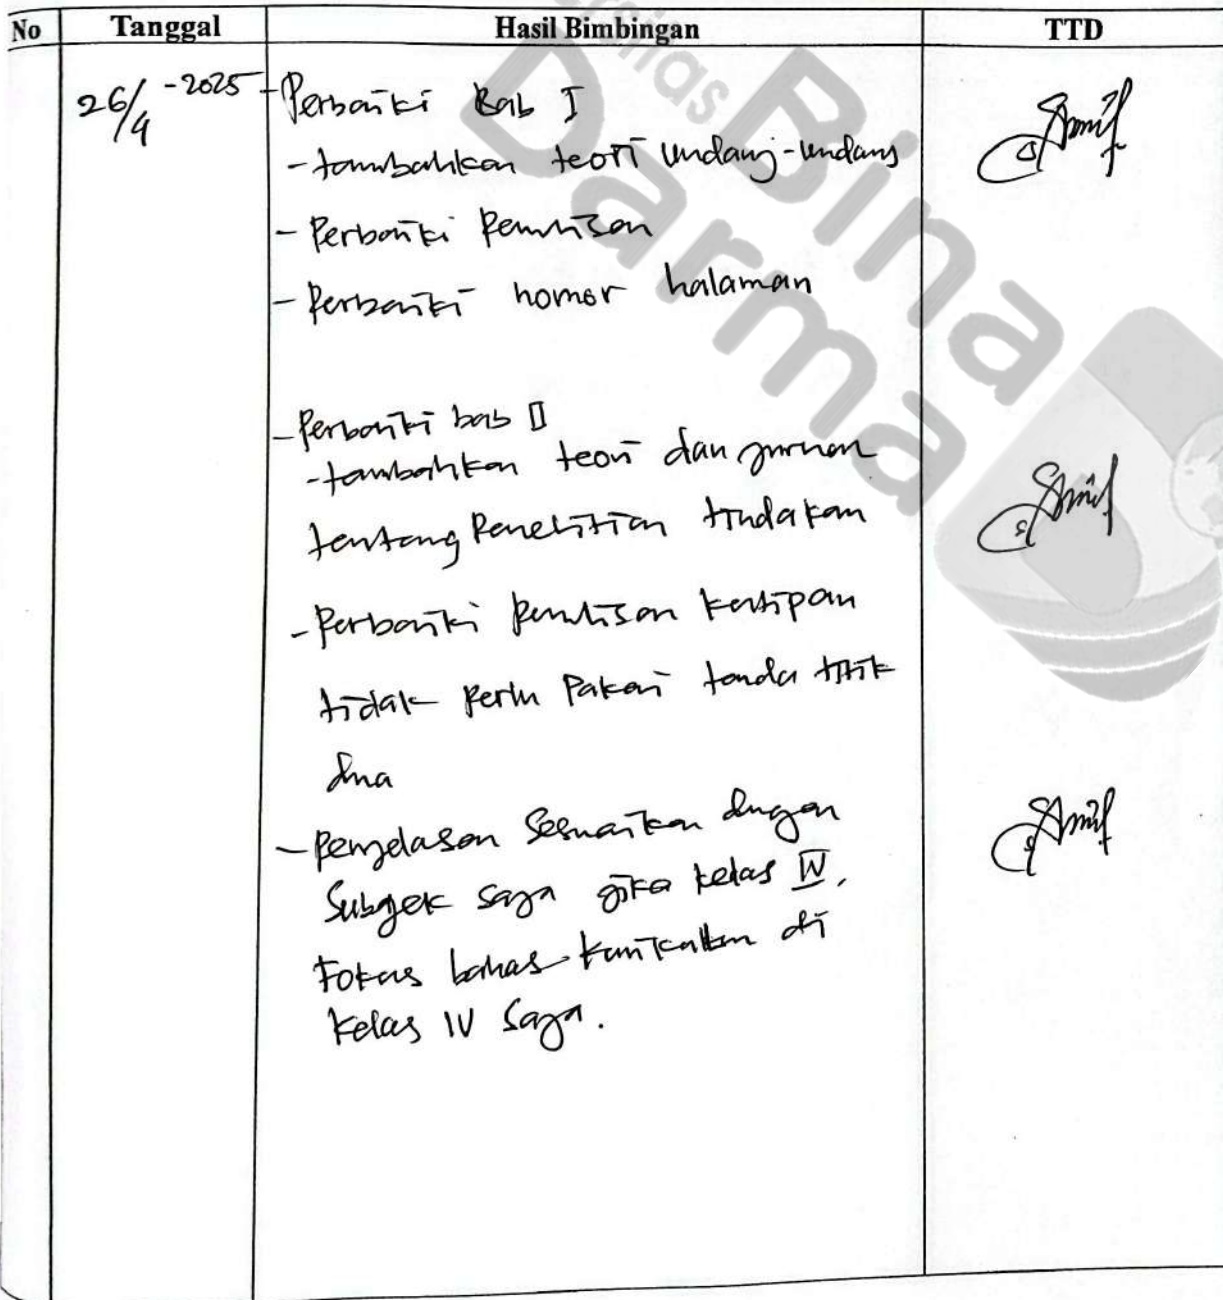 No Tanggal Hasil Bimbingan TTD
Universitas Bina Darma
26/4 -2025 - Perbaiki Bab I
- tambahkan teori undang-undang
- Perbaiki Penulisan
- Perbaiki nomor halaman
- Perbaiki bab II
- tambahkan teori dan jurnal
tentang Penelitian tindakan
- Perbaiki penulisan kutipan
tidak perlu Pakai tanda titik
dua
- Penjelasan Sesuaikan dengan
Subjek saja jika kelas IV,
Fokus bahas di
kelas IV Saja.